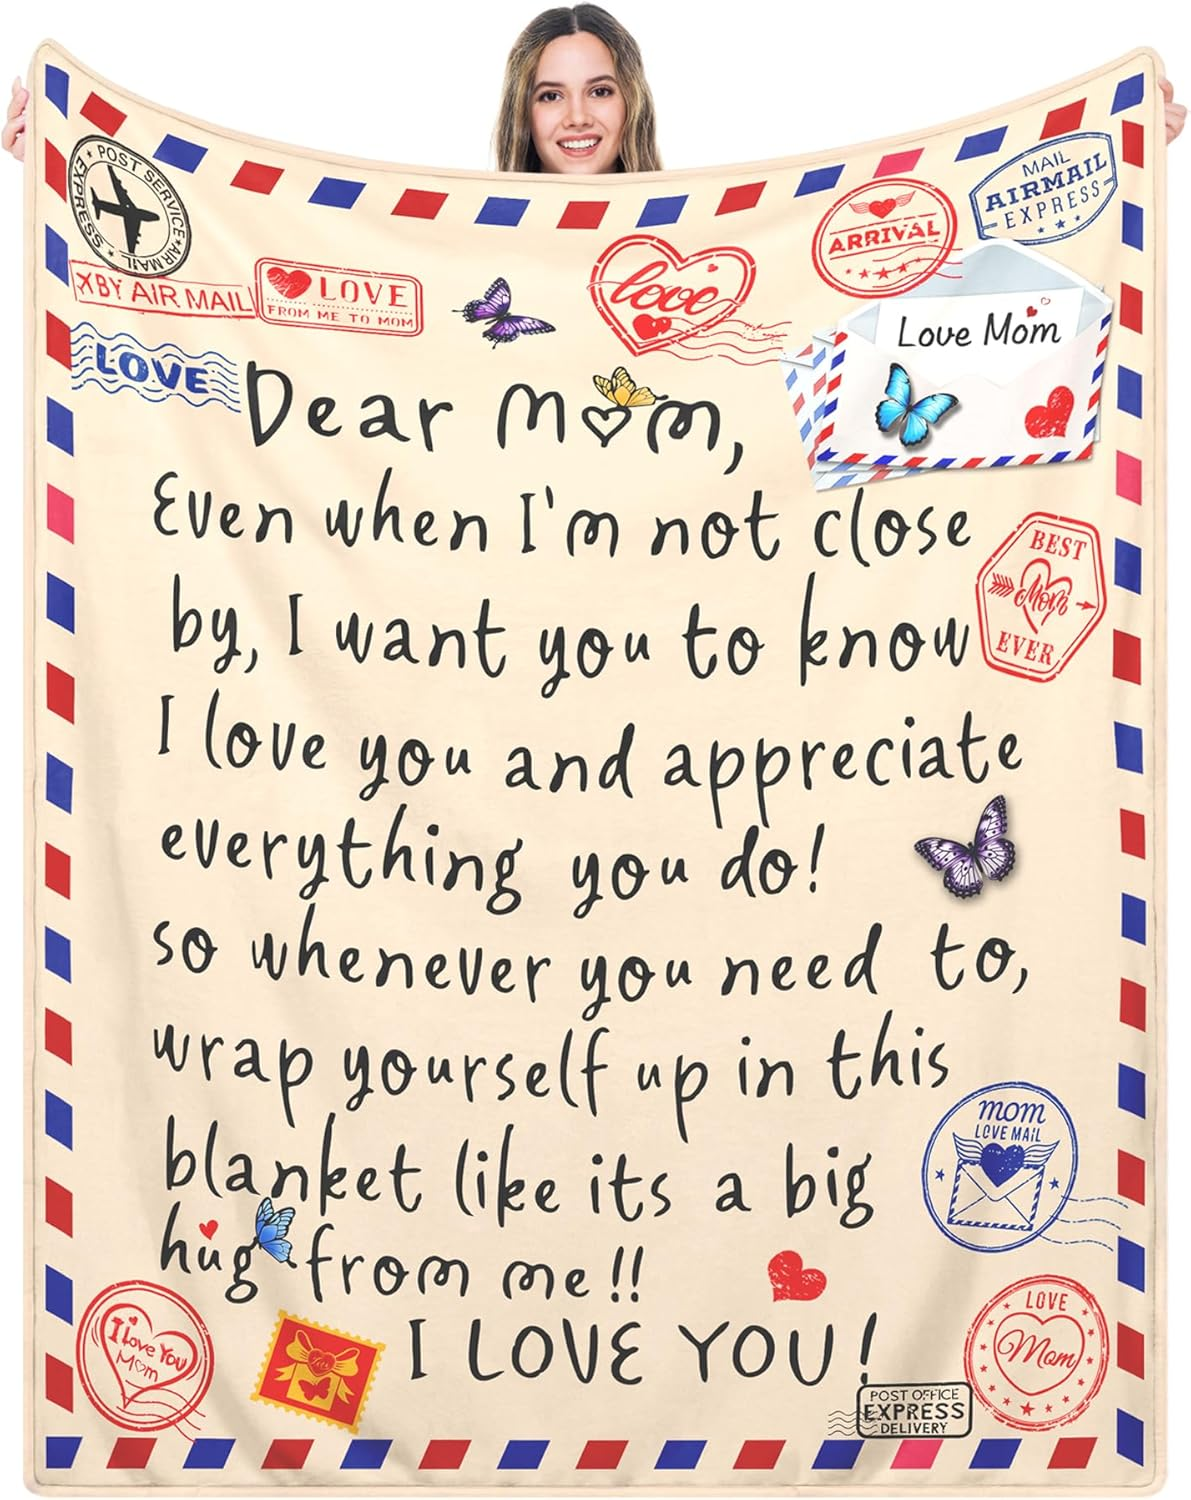 POST SERVICE
EXPRESS
AIR MAIL
XBY AIR MAIL
LOVE
FROM ME TO MOM
LOVE
love
ARRIVAL
MAIL
AIRMAIL
EXPRESS
Love Mom
Dear Mom,
Even when I'm not close
by, I want you to know
I love you and appreciate
everything you do!
so whenever you need to,
wrap yourself up in this
blanket like its a big
hug from me!!
I LOVE YOU!
BEST
Mom
EVER
mom
LOVE MAIL
I love You
Mom
LOVE
Mom
POST OFFICE
EXPRESS
DELIVERY